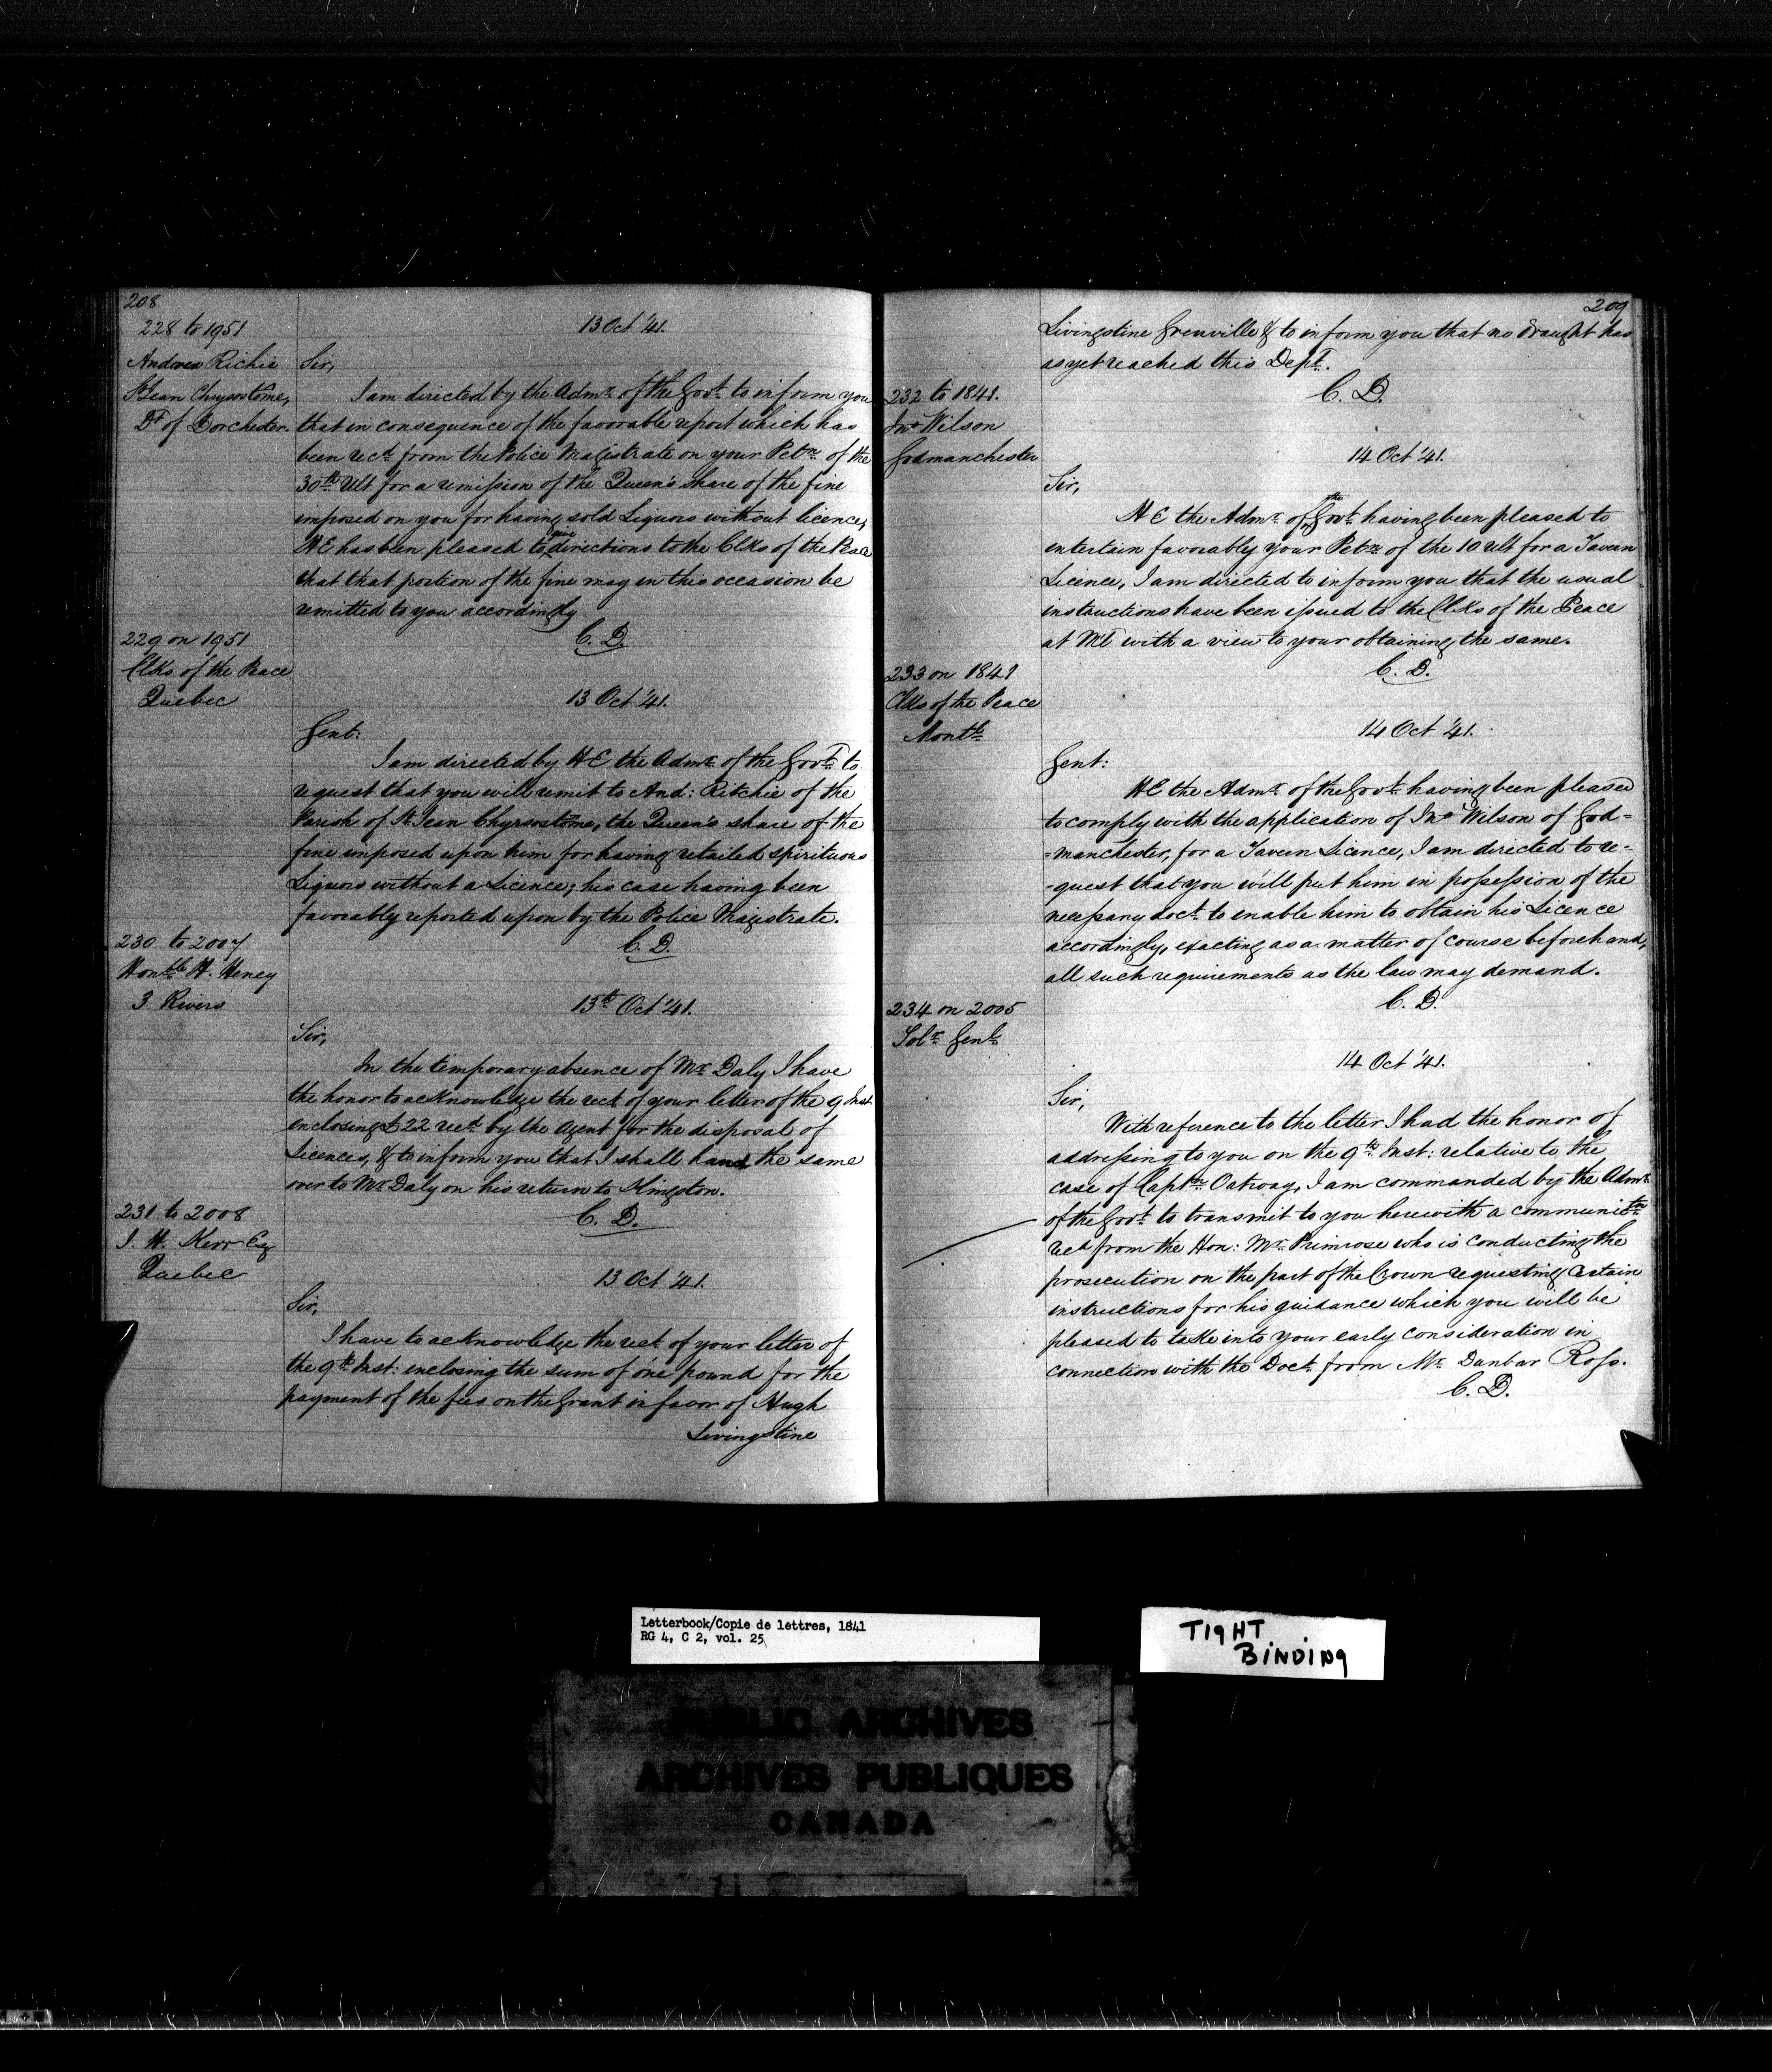 208
228 to 1951
Andrew Richie
St Jean Chrysostôme,
Dt of Dorchester.
13 Oct '41.
Sir,
I am directed by the Admr. of the Govt. to inform you
that in consequence of the favorable report which has
been recd. from the Police Magistrate on your Petn. of the
30th. Ult for a remission of the Queen's share of the fine
imposed on you for having sold Liquors without licence,
H E has been pleased to give directions to the Clks of the Peace
that that portion of the fine may in this occasion be
remitted to you accordingly
C. D.
229 on 1951
Clks of the Peace
Quebec
13 Oct '41.
Gent:
I am directed by H E the Admr. of the Govt. to
request that you will remit to And: Ritchie of the
Parish of St. Jean Chyrsostôme, the Queen's share of the
fine imposed upon him for having retailed spirituous
Liquors without a Licence; his case having been
favorably reported upon by the Police Magistrate.
C. D.
230 to 2007
Honble H. Heney
3 Rivers
13th Oct '41.
Sir,
In the temporary absence of Mr. Daly I have
the honor to acknowledge the rect. of your letter of the 9 Inst.
enclosing £22 recd. by the Agent for the disposal of
Licences, & to inform you that I shall hand the same
over to Mr. Daly on his return to Kingston.
C. D.
231 to 2008
J. H. Kerr Esq
Quebec
13 Oct '41.
Sir,
I have to acknowledge the rect. of your letter of
the 9th. Inst: inclosing the sum of one pound for the
payment of the fees on the Grant in favor of Hugh
Livingstine
209
Livingstine Grenville & to inform you that no draught has
as yet reached this Dept.
C. D.
232 to 1841.
Jno. Wilson
Godmanchester
14 Oct '41.
Sir,
H E the Admr. of the Govt. having been pleased to
entertain favorably your Petn. of the 10 Ult for a Tavern
Licence, I am directed to inform you that the usual
instructions have been issued to the Clks of the Peace
at Ml with a view to your obtaining the same.
C. D.
233 on 1841
Clks of the Peace
Montl.
14 Oct '41.
Gent:
H E the Admr. of the Govt. having been pleased
to comply with the application of Jno. Wilson of God=
=manchester, for a Tavern Licence, I am directed to re-
-quest that you will put him in possession of the
necessary doct. to enable him to obtain his Licence
accordingly, exacting as a matter of course beforehand,
all such requirements as the law may demand.
C. D.
234 on 2005
Solr. Genl.
14 Oct '41.
Sir,
With reference to the letter I had the honor of
addressing to you on the 9th. Inst: relative to the
case of Captn. Oatway, I am commanded by the Admr.
of the Govt. to transmit to you herewith a communictn.
recd from the Hon: Mr. Primrose who is conducting the
prosecution on the part of the Crown requesting certain
instructions for his guidance which you will be
pleased to take into your early consideration in
connection with the Doct. from Mr. Dunbar Ross.
C. D.
Letterbook/Copie de lettres, 1841
RG 4, C 2, vol. 25
TIGHT
BINDING
PUBLIC ARCHIVES
ARCHIVES PUBLIQUES
CANADA